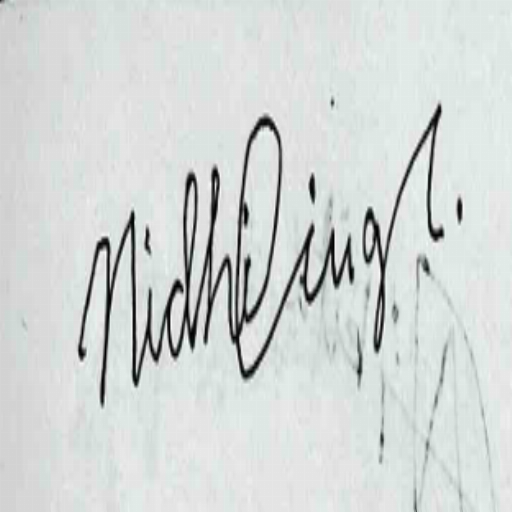 Nidhi Singh.